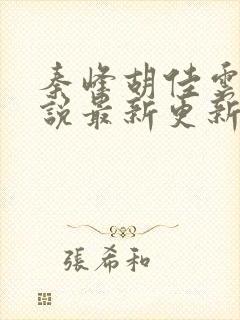 秦峰胡佳雲
說最新更新
張希和